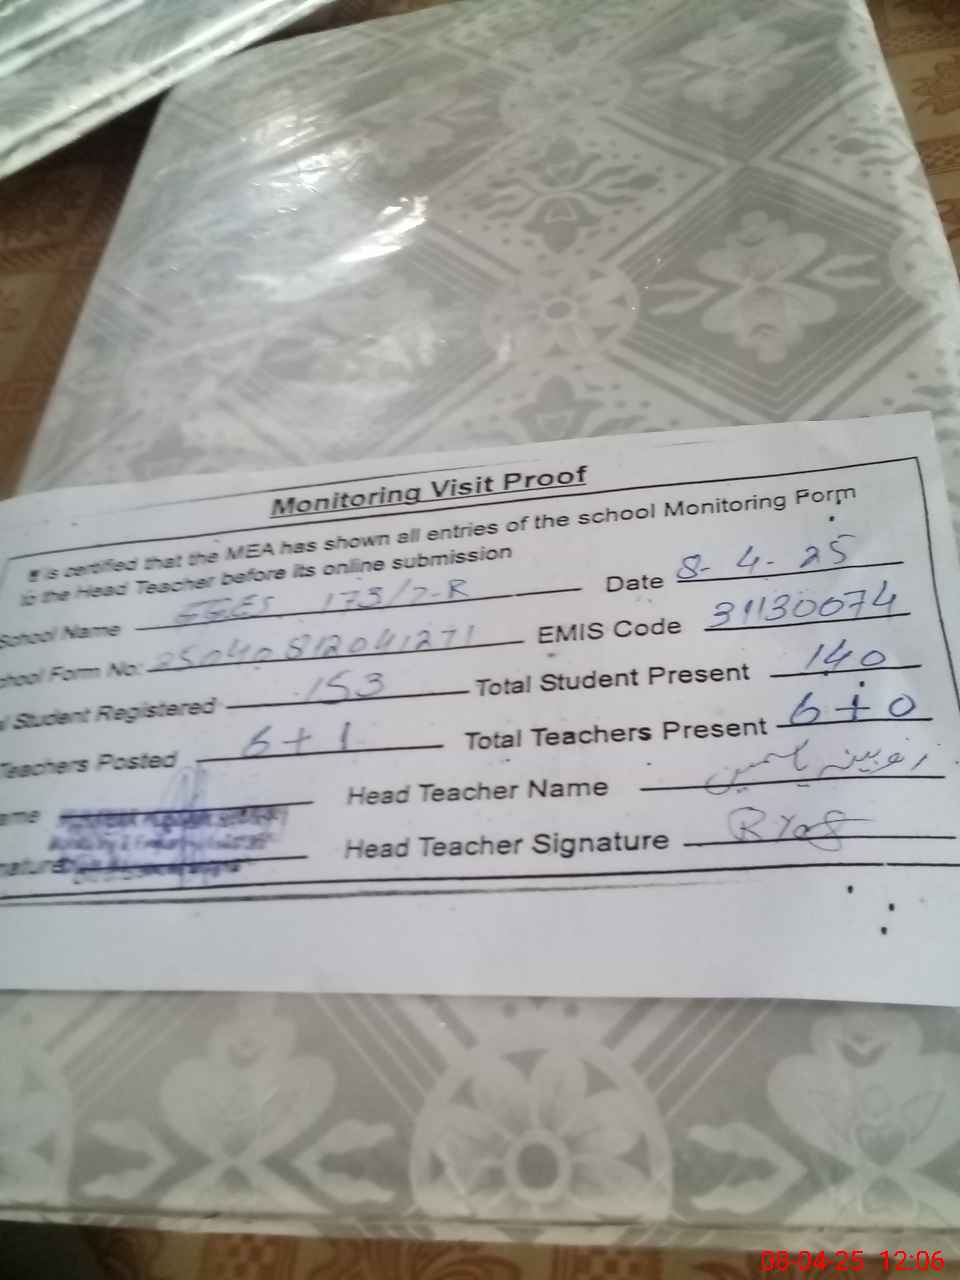 Monitoring Visit Proof
It is certified that the MEA has shown all entries of the school Monitoring Form
to the Head Teacher before its online submission
School Name 173/7-R Date 8-4-25
hool Form No: 25040812041271 EMIS Code 31130074
l Student Registered 153 Total Student Present 140
Teachers Posted 6+1 Total Teachers Present 6+0
ame Head Teacher Name روبینہ یاسمین
nature Head Teacher Signature RYas
08-04-25 12:06